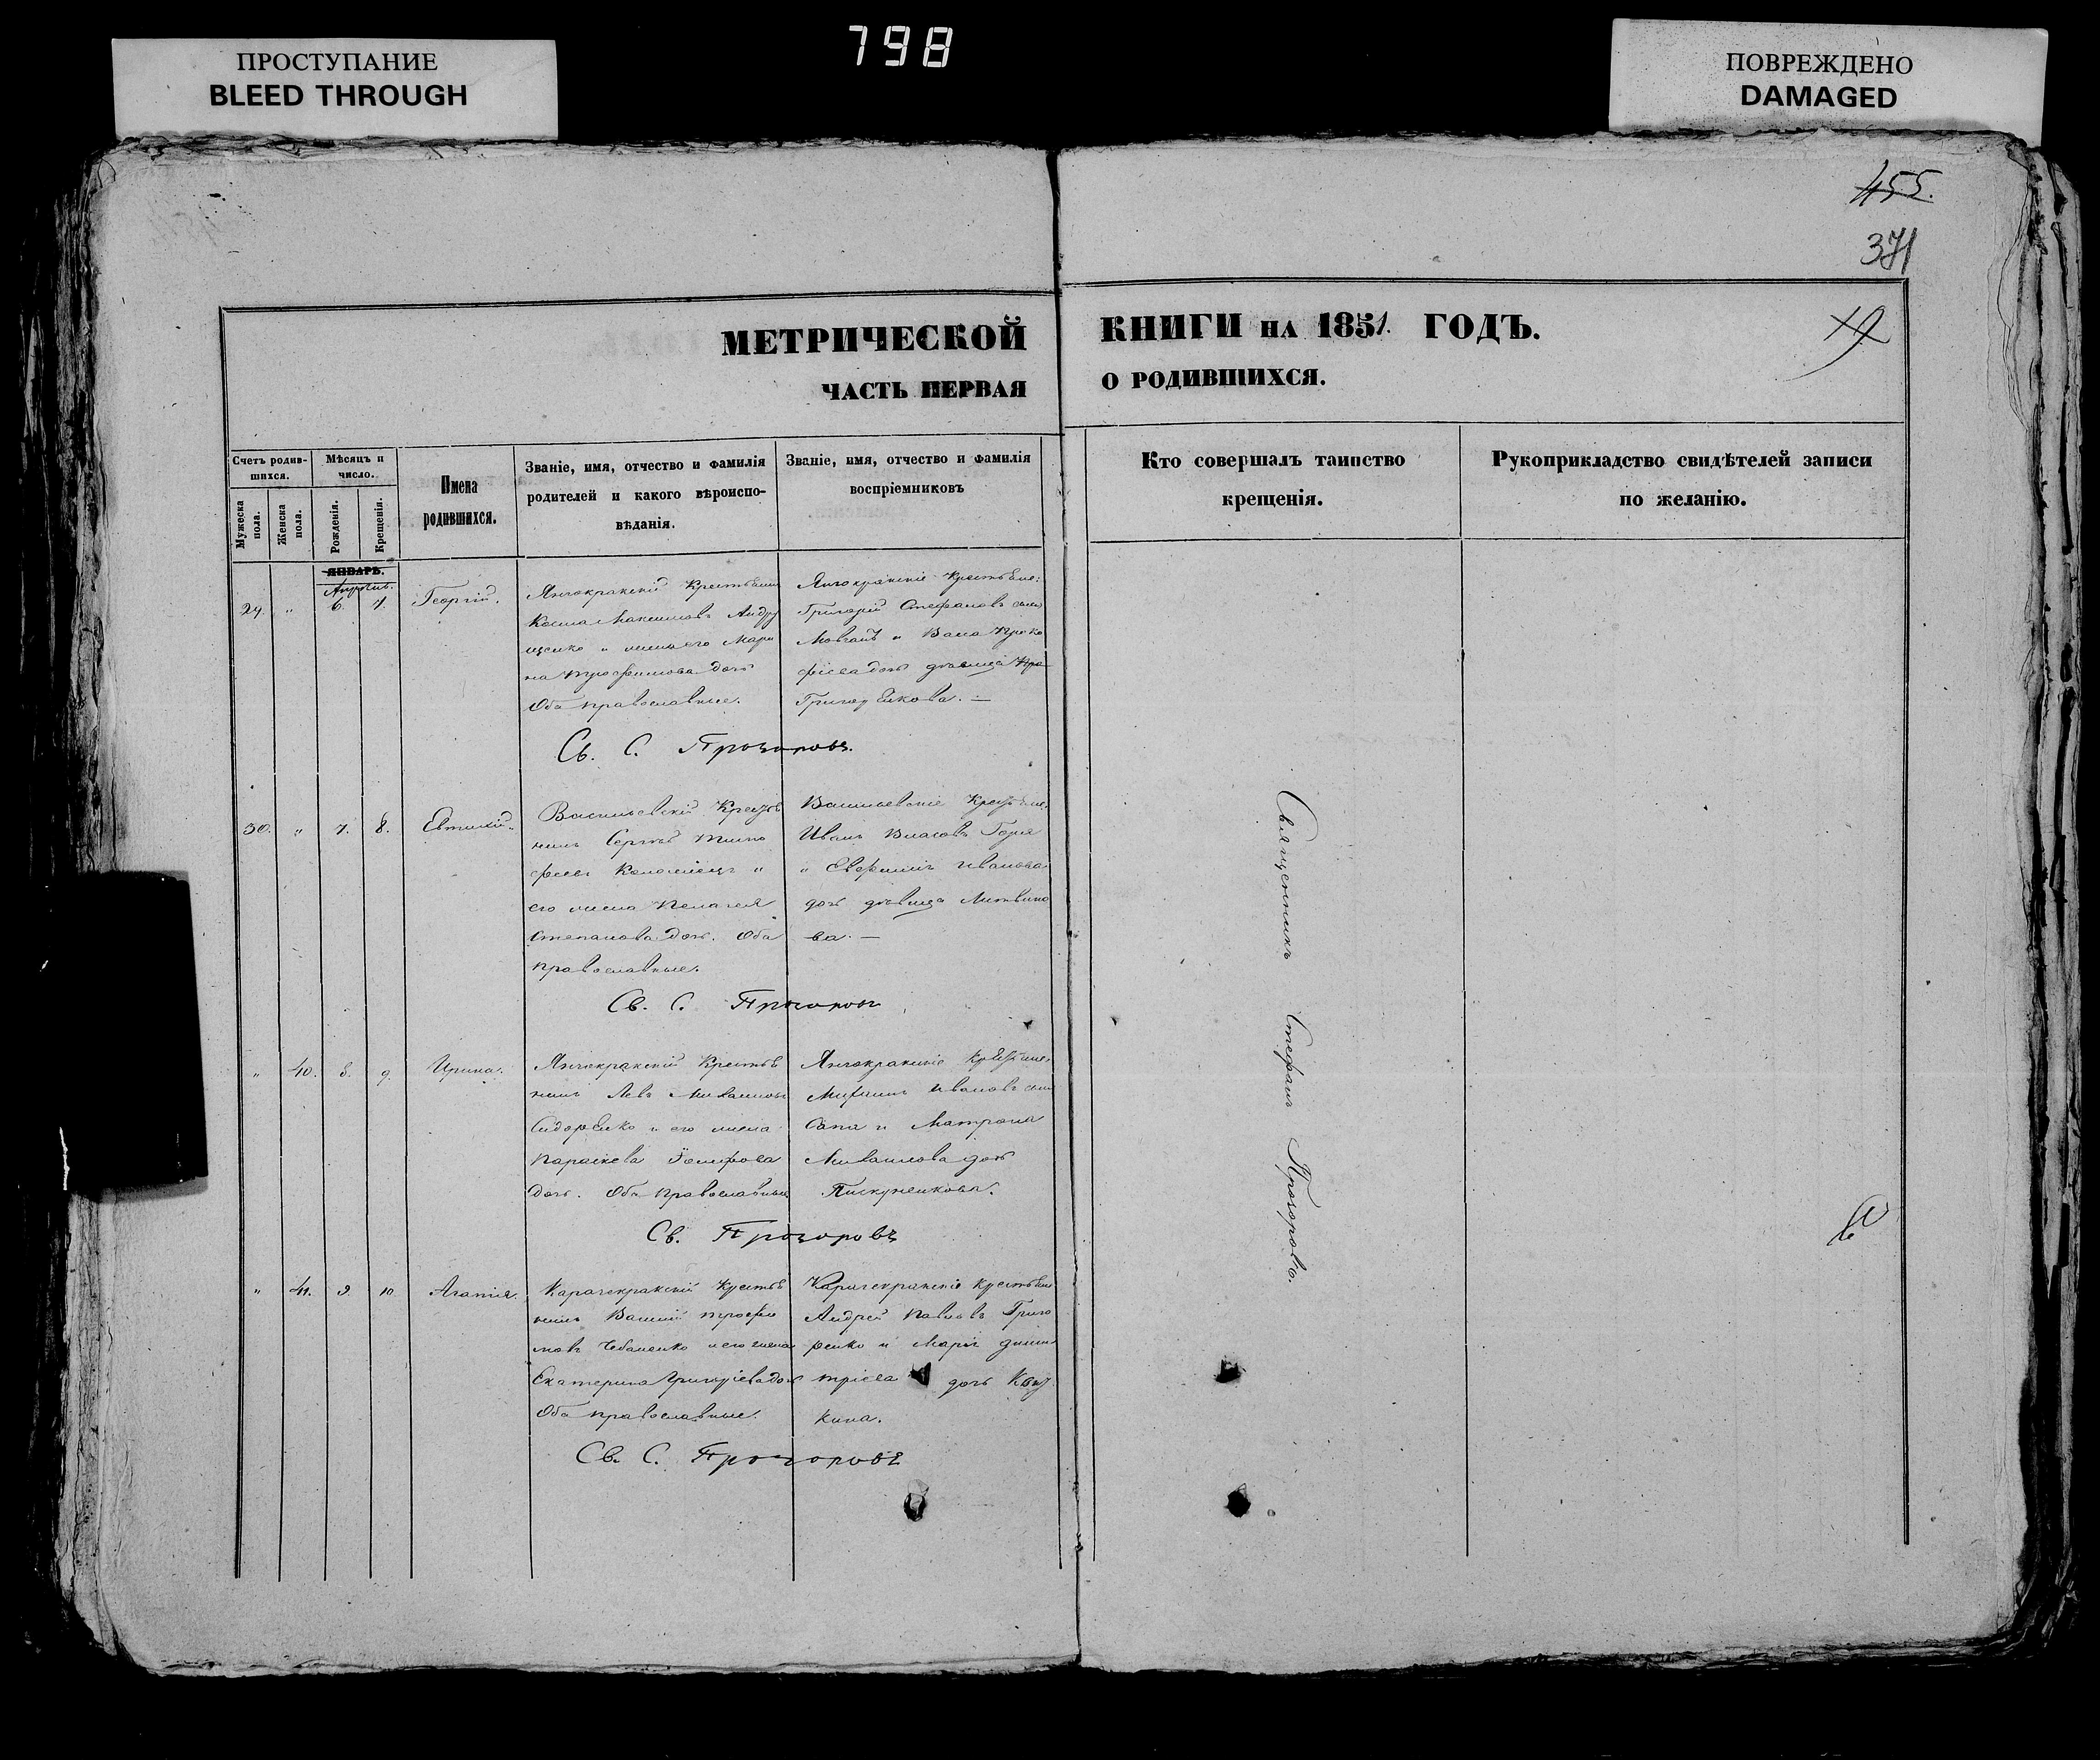 ПРОСТУПАНИЕ
BLEED THROUGH
798
ПОВРЕЖДЕНО
DAMAGED
455.
371
МЕТРИЧЕСКОЙ
ЧАСТЬ ПЕРВАЯ
КНИГИ НА 1851. ГОДЪ.
О РОДИВШИХСЯ.
Счетъ родив-
шихся.
Мужеска пола.
Женска пола.
Мѣсяцъ и
число.
Рожденія.
Крещенія.
Имена
родившихся.
Званіе, имя, отчество и фамилія
родителей и какого вѣроиспо-
вѣданія.
Званіе, имя, отчество и фамилія
воспріемниковъ
Кто совершалъ таинство
крещенія.
Рукоприкладство свидѣтелей записи
по желанію.
ЯНВАРЬ.
Апрѣль.
29. " 6. 7. Георгій.
Янчокракскій Крестьянинъ
Косма Максимовъ Андру
щенко и жена его Мари
на Трофимова дочь
Оба православные.
Янчокракскіе Крестьяне:
Григорій Стефановъ сынъ
Мовчанъ и
дочь дѣвица
Св. С. Прозоровъ.
30. " 7. 8. Евтихій.
Васильевскій Крестья
нинъ Сергѣй Тимо
феевъ Коломіецъ и
его жена Пелагея
Степанова дочь. Оба
православные.
Васильевскіе Крестьяне:
Иванъ Власовъ
и Евфимія Иванова
дочь дѣвица Литвино
ва. —
Св. С. Прозоровъ
" 40. 8. 9. Ирина.
Янчокракскій Крестья
нинъ Левъ Михайловъ
Сидоренко и его жена
Параскева
дочь. Оба православные
Янчокракскіе Крестьяне:
Ивановъ сынъ
Сапа и Матрона
Михайлова дочь
Пискуненкова.
Св. Прозоровъ
" 41. 9. 10. Агапія.
Карачекракскій Крестья
нинъ Василій Трофи
мовъ Чебаненко и его жена
Екатерина Григорьева дочь
Оба православные.
Карачекракскіе Крестьяне
Андрей Павловъ Григо
ренко и Марія Дими
тріева дочь
кина.
Св. С. Прозоровъ
Священникъ Стефанъ Прозоровъ.